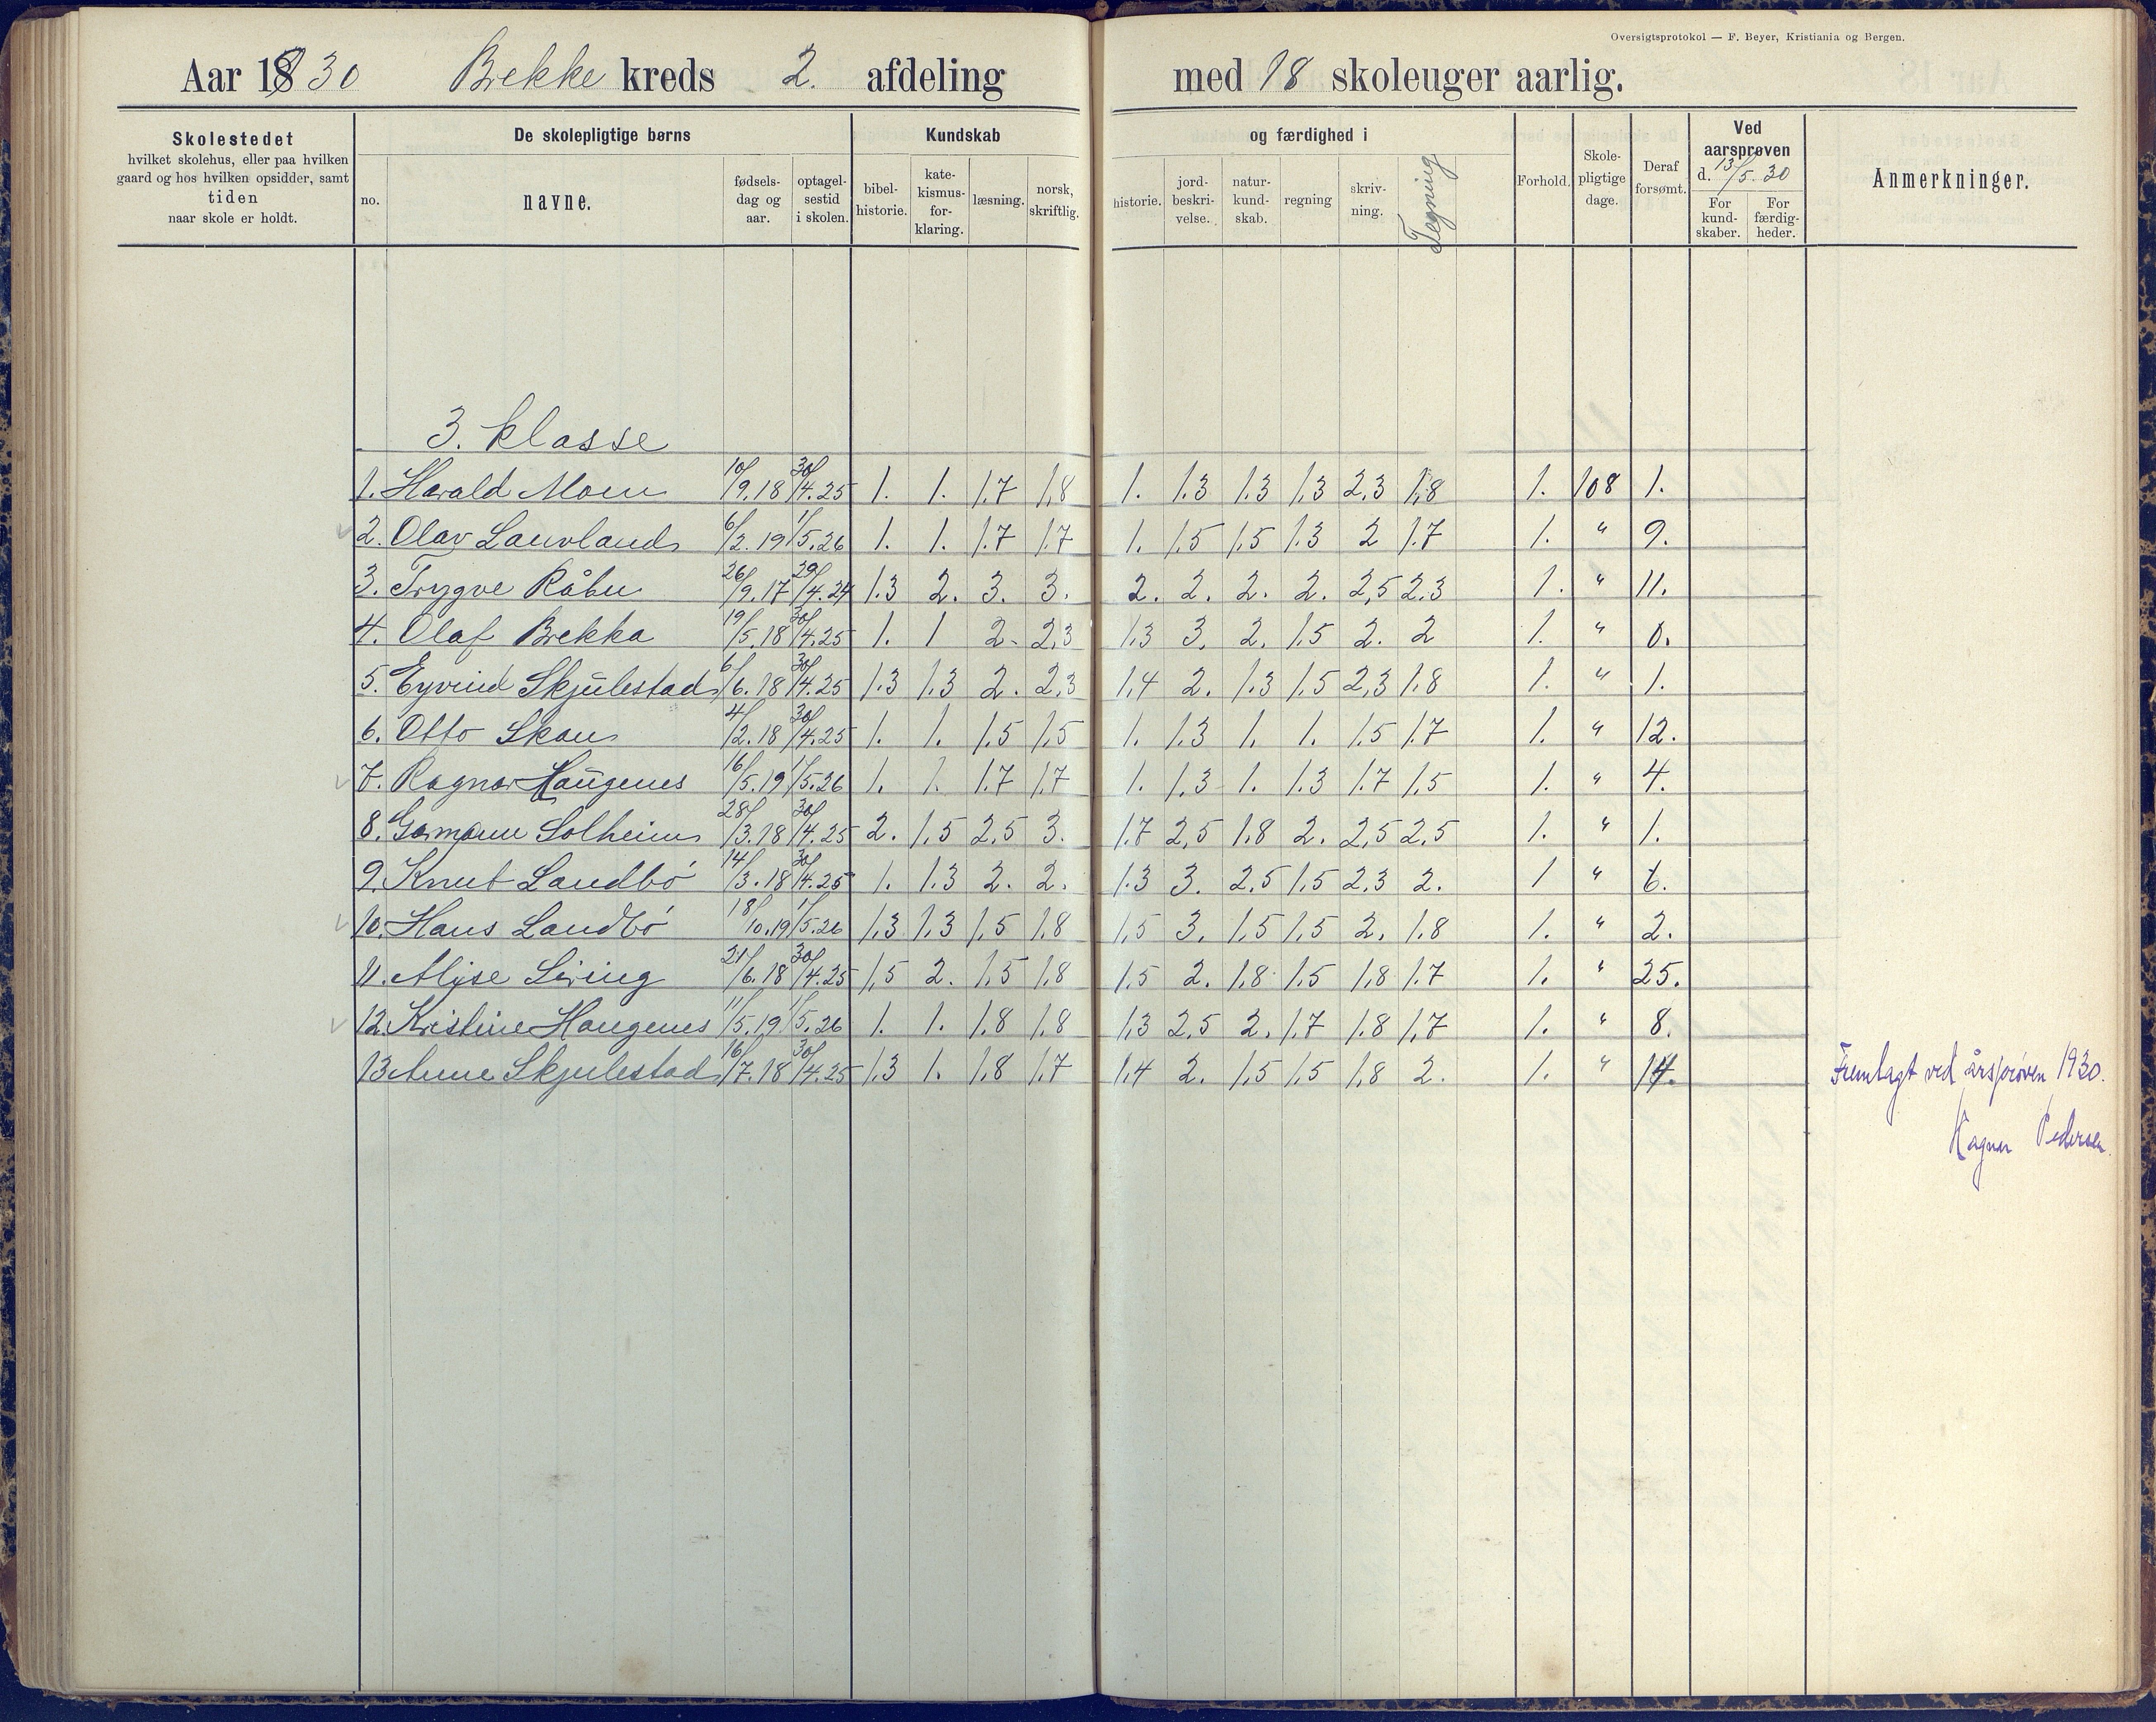 Oversigtsprotokol — F. Beyer, Kristiania og Bergen.
Aar 1930 Brekke kreds 2. afdeling med 18 skoleuger aarlig.
Skolestedet
hvilket skolehus, eller paa hvilken
gaard og hos hvilken opsidder, samt
tiden
naar skole er holdt.
De skolepligtige børns
no.
navne.
fødsels-
dag og
aar.
optagel-
sestid
i skolen.
Kundskab og færdighed i
bibel-
historie.
kate-
kismus-
for-
klaring.
læsning.
norsk,
skriftlig.
historie.
jord-
beskri-
velse.
natur-
kund-
skab.
regning
skriv-
ning.
Tegning
Forhold.
Skole-
pligtige
dage.
Deraf
forsømt.
Ved
aarsprøven
d. 13/5. 30
For
kund-
skaber.
For
færdig-
heder.
Anmerkninger.
3. klasse
1. Harald Moen 10/9.18 30/4.25 1. 1. 1.7 1,8 1. 1.3 1.3 1.3 2,3 1,8 1. 108 1.
2. Olav Lauvland 6/2.19 1/5.26 1. 1. 1.7 1.7 1. 1.5 1.5 1.3 2 1.7 1. " 9.
3. Trygve Råbu 26/9.17 29/4.24 1.3 2. 3. 3. 2. 2. 2. 2. 2,5 2.3 1. " 11.
4. Olaf Brekka 19/5.18 30/4.25 1. 1 2. 2,3 1.3 3. 2. 1.5 2. 2 1. " 0.
5. Eyvind Skjulestad 6/6.18 30/4.25 1.3 1.3 2. 2,3 1,4 2. 1.3 1.5 2,3 1.8 1. " 1.
6. Otto Skau 4/2.18 30/4.25 1. 1. 1.5 1,5 1. 1.3 1. 1. 1.5 1.7 1. " 12.
7. Ragnar Haugenes 16/5.19 1/5.26 1. 1. 1.7 1.7 1. 1.3 1. 1.3 1.7 1,5 1. " 4.
8. Garmann Solheim 28/3.18 30/4.25 2. 1,5 2,5 3. 1.7 2,5 1.8 2. 2,5 2,5 1. " 1.
9. Knut Landbö 14/3.18 30/4.25 1. 1.3 2. 2. 1.3 3. 2.5 1.5 2.3 2. 1 " 6.
10. Hans Landbö 18/10.19 1/5.26 1,3 1.3 1,5 1.8 1,5 3. 1,5 1.5 2. 1.8 1. " 2.
11. Alise Liring 21/6.18 30/4.25 1,5 2. 1.5 1.8 1.5 2. 1.8 1.5 1,8 1.7 1. " 25.
12. Kristine Haugenes 11/5.19 1/5.26 1. 1. 1.8 1.8 1,3 2,5 2. 1.7 1.8 1,7 1. " 8.
13. Anne Skjulestad 16/7.18 30/4.25 1.3 1. 1,8 1.7 1,4 2. 1,5 1.5 1.8 2. 1. " 14.
Fremlagt ved årsprøven 1930.
Ragnar Pedersen.